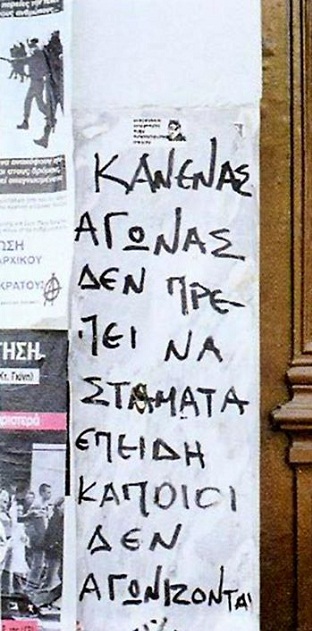 ΚΑΝΕΝΑΣ
ΑΓΩΝΑΣ
ΔΕΝ ΠΡΕ-
ΠΕΙ ΝΑ
ΣΤΑΜΑΤΑ
ΕΠΕΙΔΗ
ΚΑΠΟΙΟΙ
ΔΕΝ
ΑΓΩΝΙΖΟΝΤΑΙ
ΩΣΗ
ΑΡΧΙΚΟΥ
ΚΡΑΤΟΥΣ
ΤΗΣΗ